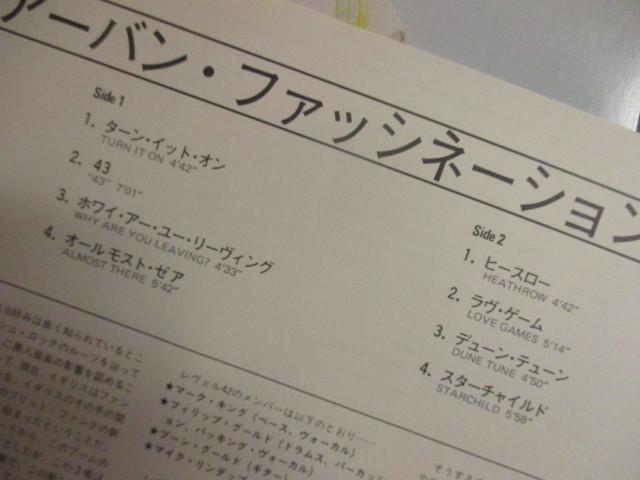 アーバン・ファッシネーション
Side 1
1. ターン・イット・オン
TURN IT ON 4'42"
2. 43
"43" 7'01"
3. ホワイ・アー・ユー・リーヴィング
WHY ARE YOU LEAVING? 4'33"
4. オールモスト・ゼア
ALMOST THERE 5'42"
Side 2
1. ヒースロー
HEATHROW 4'42"
2. ラヴ・ゲーム
LOVE GAMES 5'14"
3. デューン・テューン
DUNE TUNE 4'50"
4. スターチャイルド
STARCHILD 5'58"
好みは良く知られているとこ
ロックのルーツを辿って
に黒人音楽の影響を認めるこ
現在、イギリスはファン
イギリスのその手の
ブリット・ファンクの
始まったということだ
から、このブームの
としたが、この3名は
レヴェル42のメンバーは以下のとおり……
★マーク・キング（ベース、ヴォーカル）
★フィリップ・グールド（ドラムス、パーカッ
ョン、バッキング・ヴォーカル）
★ブーン・グールド（ギター）
★マイク・リンダッ